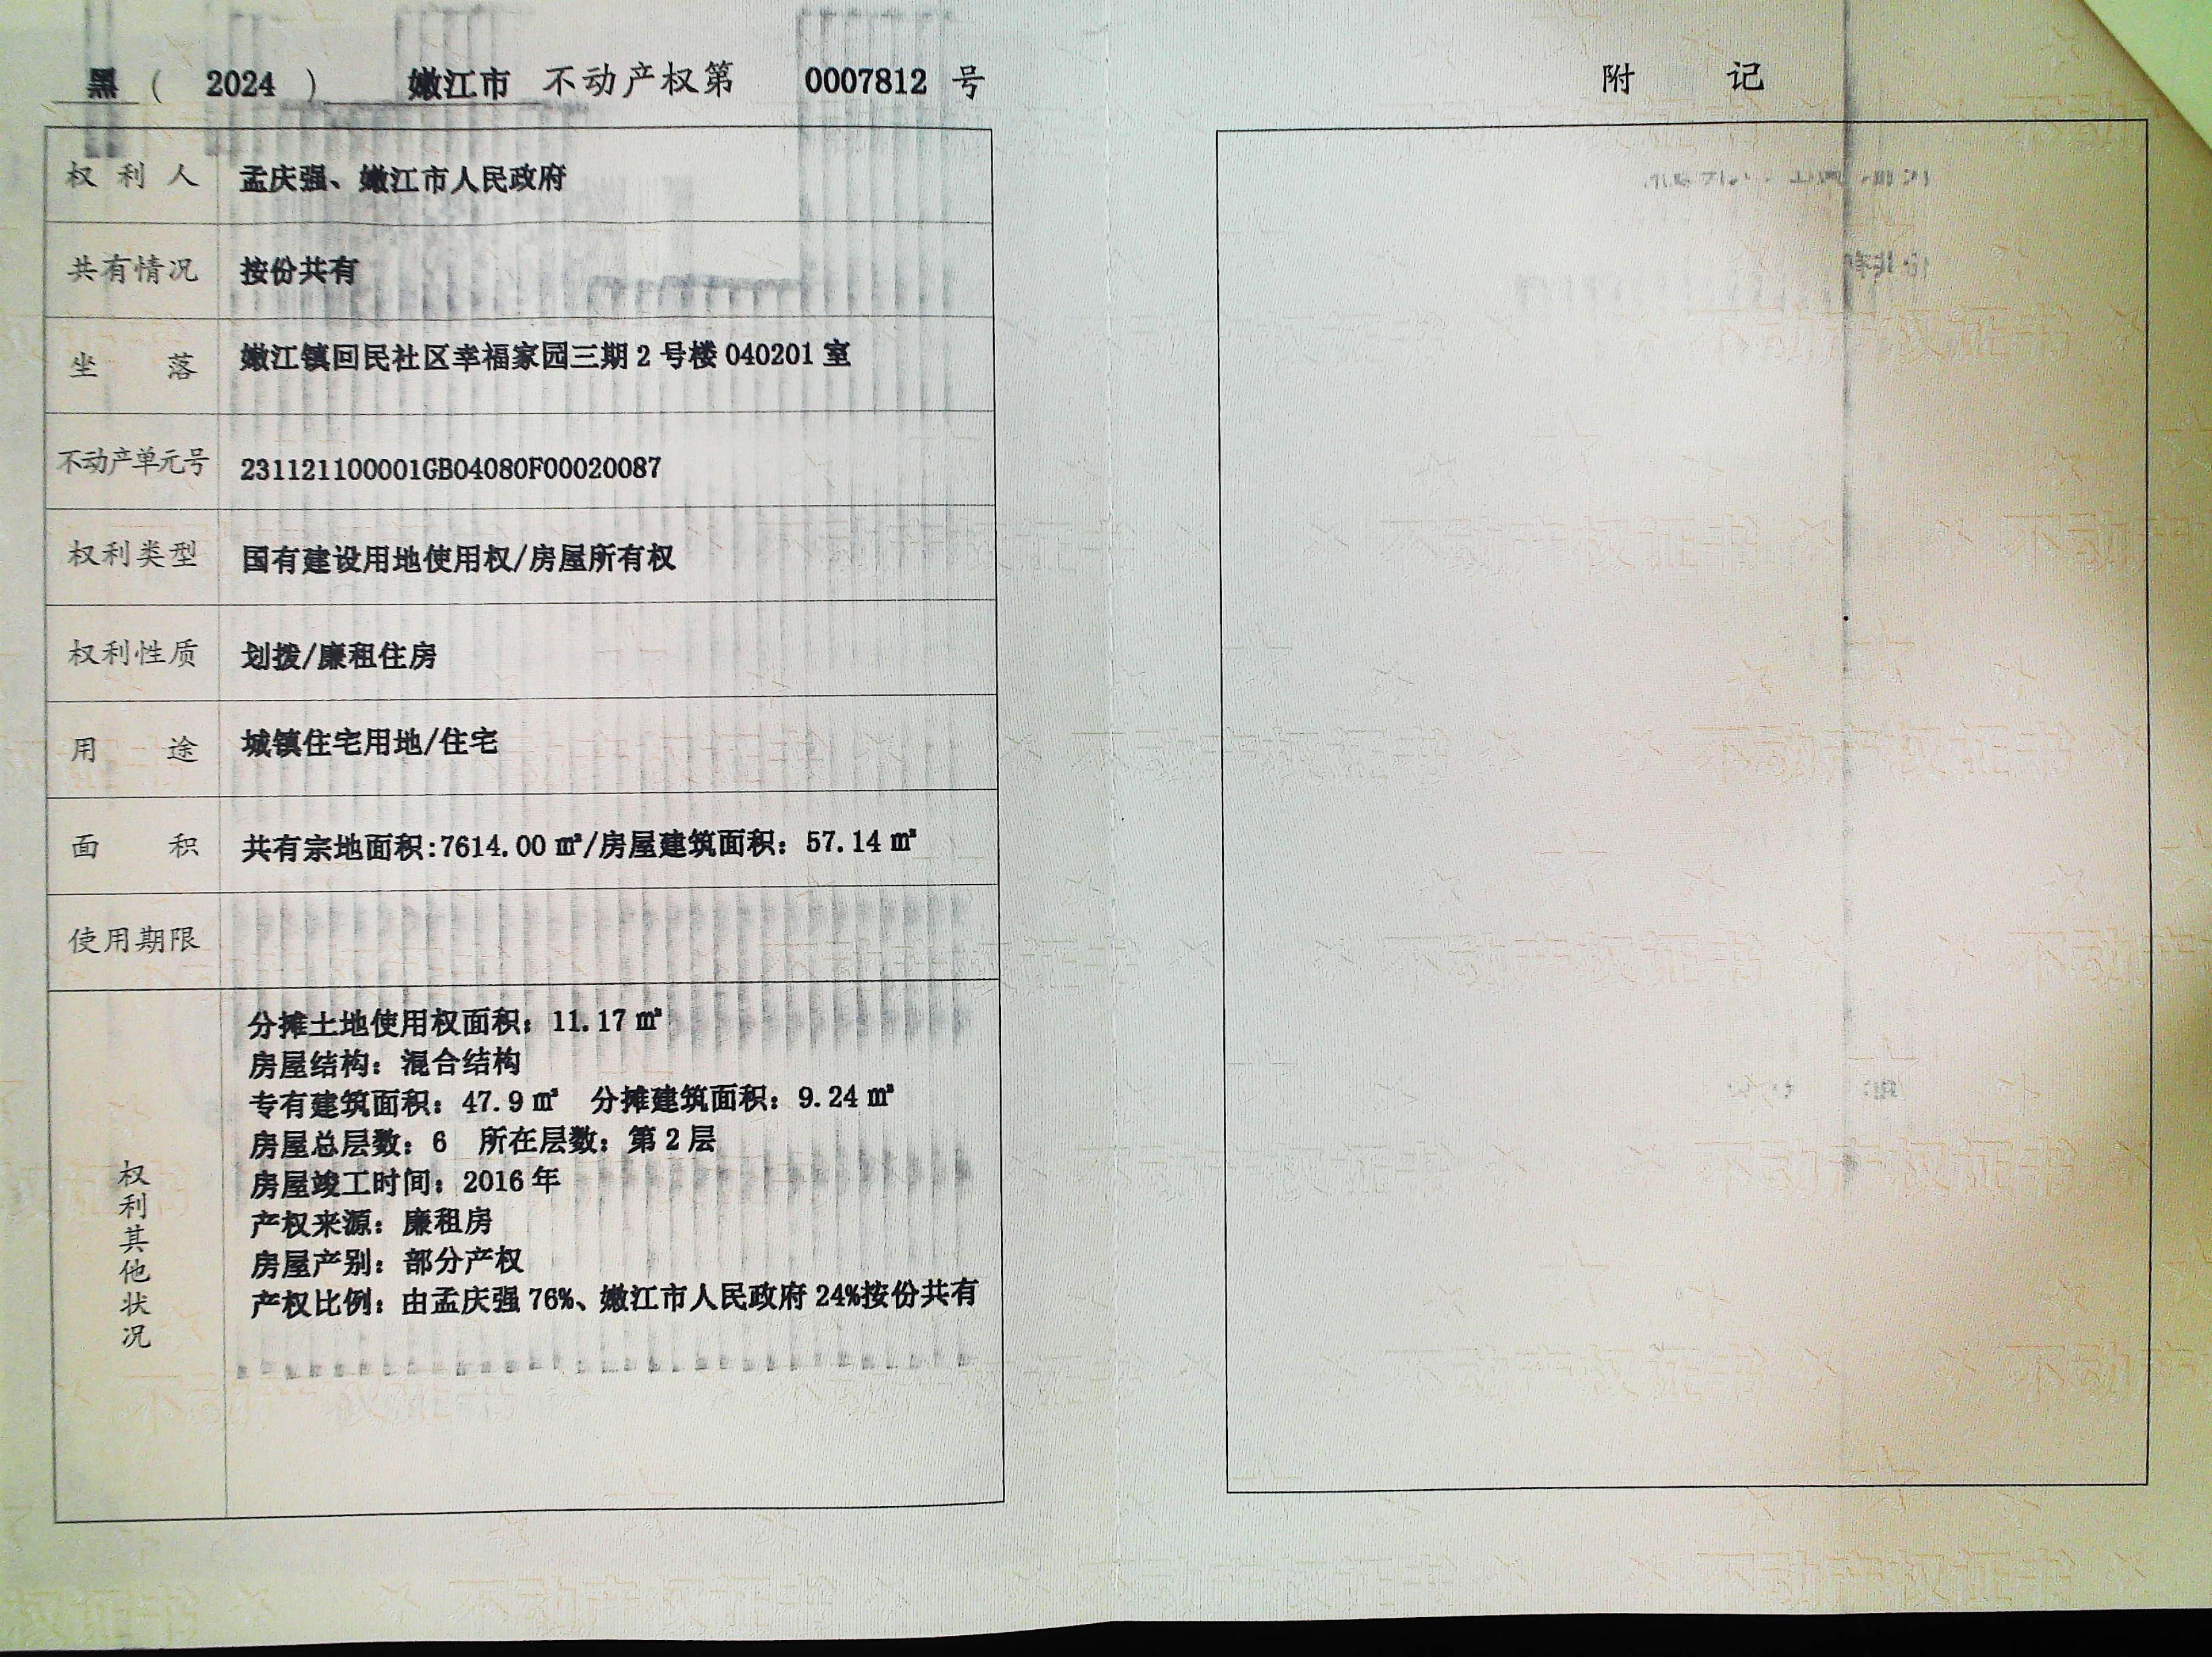 黑（ 2024 ） 嫩江市 不动产权第 0007812 号
权利人 孟庆强、嫩江市人民政府
共有情况 按份共有
坐落 嫩江镇回民社区幸福家园三期 2 号楼 040201 室
不动产单元号 231121100001GB04080F00020087
权利类型 国有建设用地使用权/房屋所有权
权利性质 划拨/廉租住房
用途 城镇住宅用地/住宅
面积 共有宗地面积:7614.00 ㎡/房屋建筑面积：57.14 ㎡
使用期限
权利其他状况
分摊土地使用权面积：11.17 ㎡
房屋结构：混合结构
专有建筑面积：47.9 ㎡ 分摊建筑面积：9.24 ㎡
房屋总层数：6 所在层数：第 2 层
房屋竣工时间：2016 年
产权来源：廉租房
房屋产别：部分产权
产权比例：由孟庆强 76%、嫩江市人民政府 24%按份共有
附 记